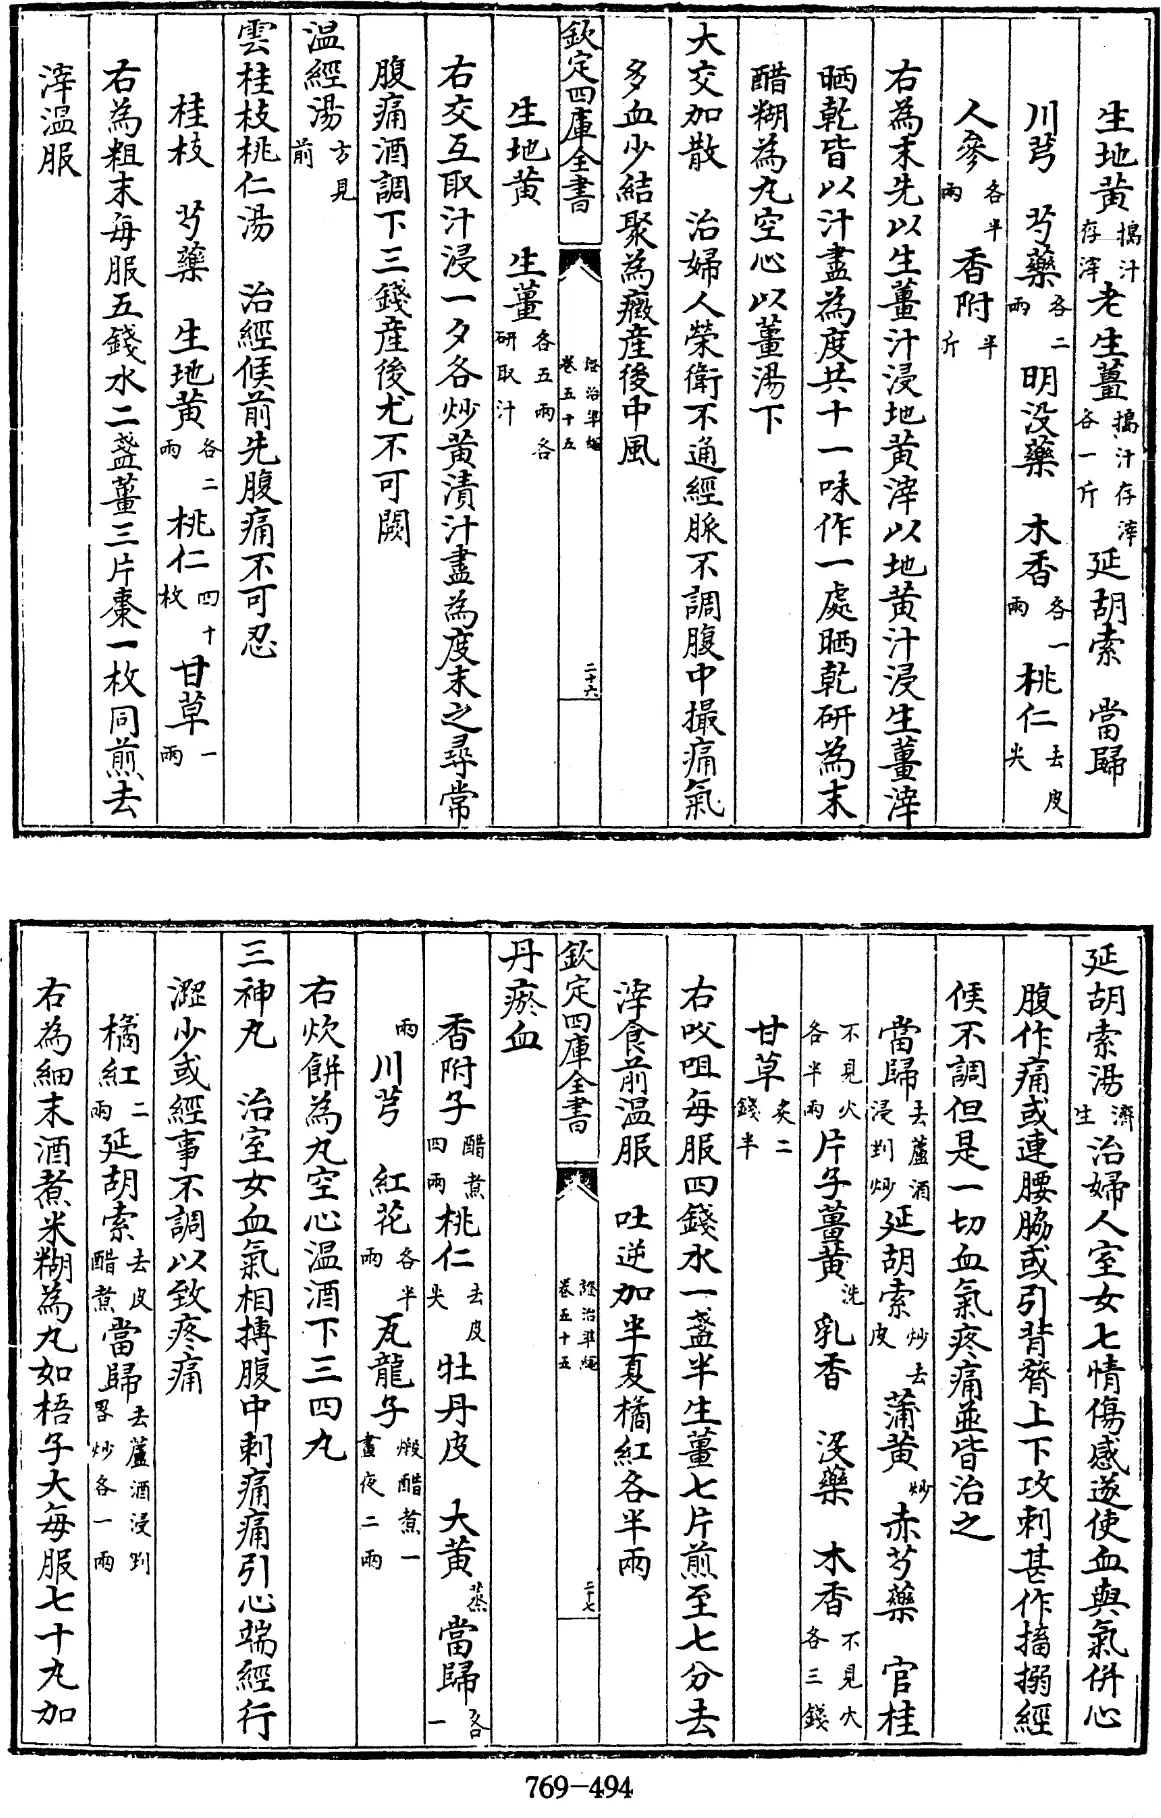 生地黄搗汁存滓老生薑搗汁存滓各一斤延胡索　當歸
川芎　芍藥各二兩　明没藥　木香各一兩　桃仁去皮尖
人參各半兩　香附半斤
右為末先以生薑汁浸地黄滓以地黄汁浸生薑滓
晒乾皆以汁盡為度共十一味作一處晒乾研為末
醋糊為丸空心以薑湯下
大交加散　治婦人榮衛不通經脈不調腹中撮痛氣
多血少結聚為癥産後中風
欽定四庫全書　證治準繩卷五十五　二十六
生地黄　生薑各五兩各研取汁
右交互取汁浸一夕各炒黄漬汁盡為度末之尋常
腹痛酒調下三錢産後尤不可闕
温經湯方見前
雲桂枝桃仁湯　治經候前先腹痛不可忍
桂枝　芍藥　生地黄各二兩　桃仁四十枚　甘草一兩
右為粗末每服五錢水二盞薑三片棗一枚同煎去
滓温服
延胡索湯濟生　治婦人室女七情傷感遂使血與氣併心
腹作痛或連腰脇或引背膂上下攻刺甚作搐搦經
候不調但是一切血氣疼痛並皆治之
當歸去蘆酒浸剉炒延胡索炒去皮　蒲黄炒　赤芍藥　官桂
不見火各半兩　片子薑黄洗　乳香　没藥　木香不見火各三錢
甘草炙二錢半
右㕮咀每服四錢水一盞半生薑七片煎至七分去
滓食前温服　吐逆加半夏橘紅各半兩
欽定四庫全書　證治準繩卷五十五　二十七
丹瘀血
香附子醋煮四兩桃仁去皮尖　牡丹皮　大黄蒸　當歸各一
兩　川芎　紅花各半兩　瓦龍子煅醋煮一晝夜二兩
右炊餅為丸空心温酒下三四丸
三神丸　治室女血氣相搏腹中刺痛痛引心端經行
澀少或經事不調以致疼痛
橘紅二兩延胡索去皮醋煮當歸去蘆酒浸剉畧炒各一兩
右為細末酒煮米糊為丸如梧子大每服七十丸加
769-494